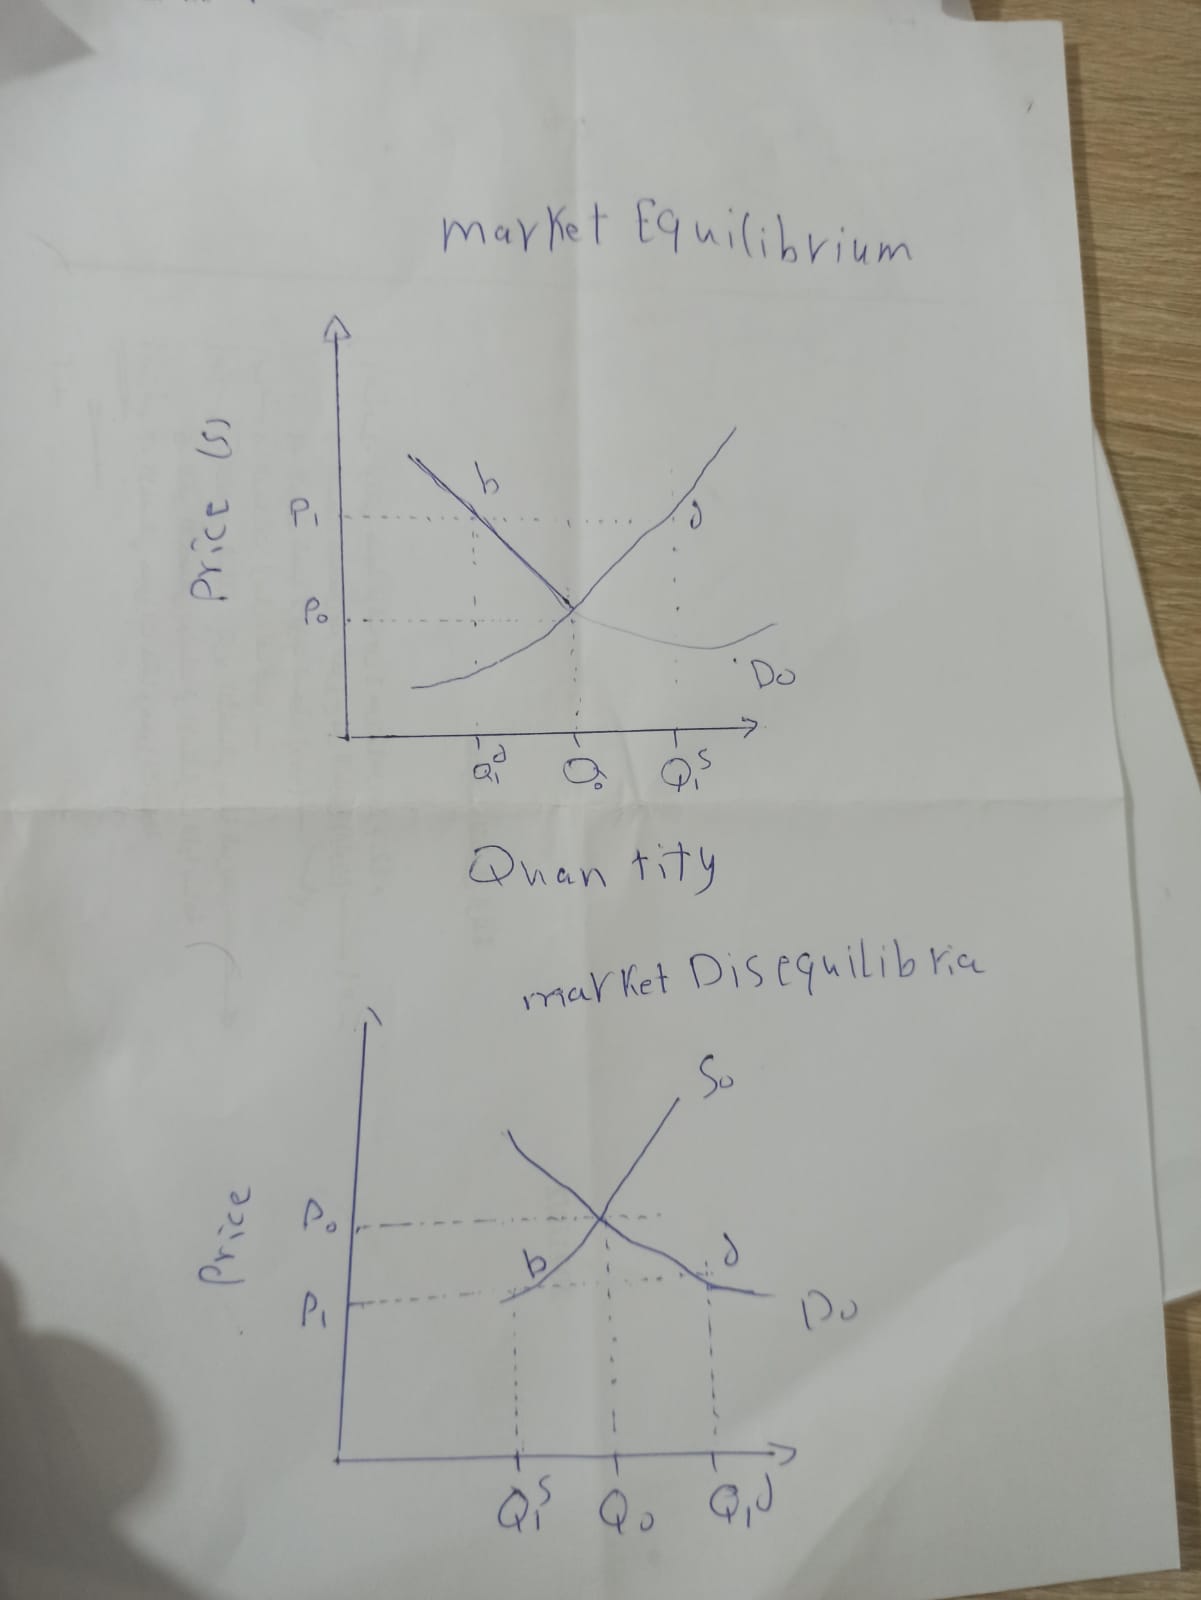 market Equilibrium
Price (s)
b
P1
d
P0
D0
Q1d
Q0
Q1s
Quantity
market Disequilibria
S0
Price
P0
b
d
P1
D0
Q1s
Q0
Q1d